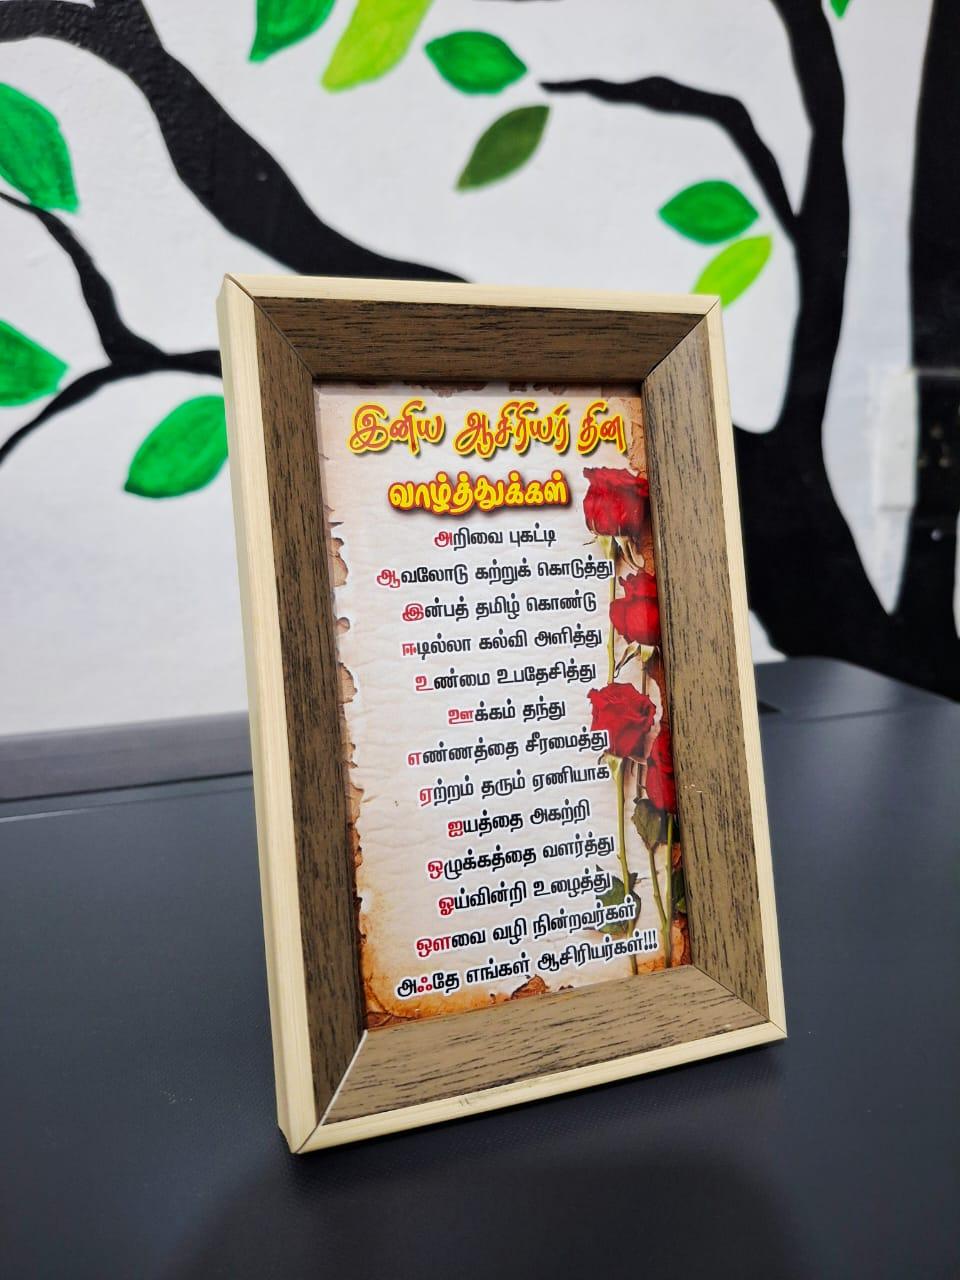 இனிய ஆசிரியர் தின
வாழ்த்துக்கள்
அறிவை புகட்டி
ஆவலோடு கற்றுக் கொடுத்து
இன்பத் தமிழ் கொண்டு
ஈடில்லா கல்வி அளித்து
உண்மை உபதேசித்து
ஊக்கம் தந்து
எண்ணத்தை சீரமைத்து
ஏற்றம் தரும் ஏணியாக
ஐயத்தை அகற்றி
ஒழுக்கத்தை வளர்த்து
ஓய்வின்றி உழைத்து
ஔவை வழி நின்றவர்கள்
அஃதே எங்கள் ஆசிரியர்கள்!!!